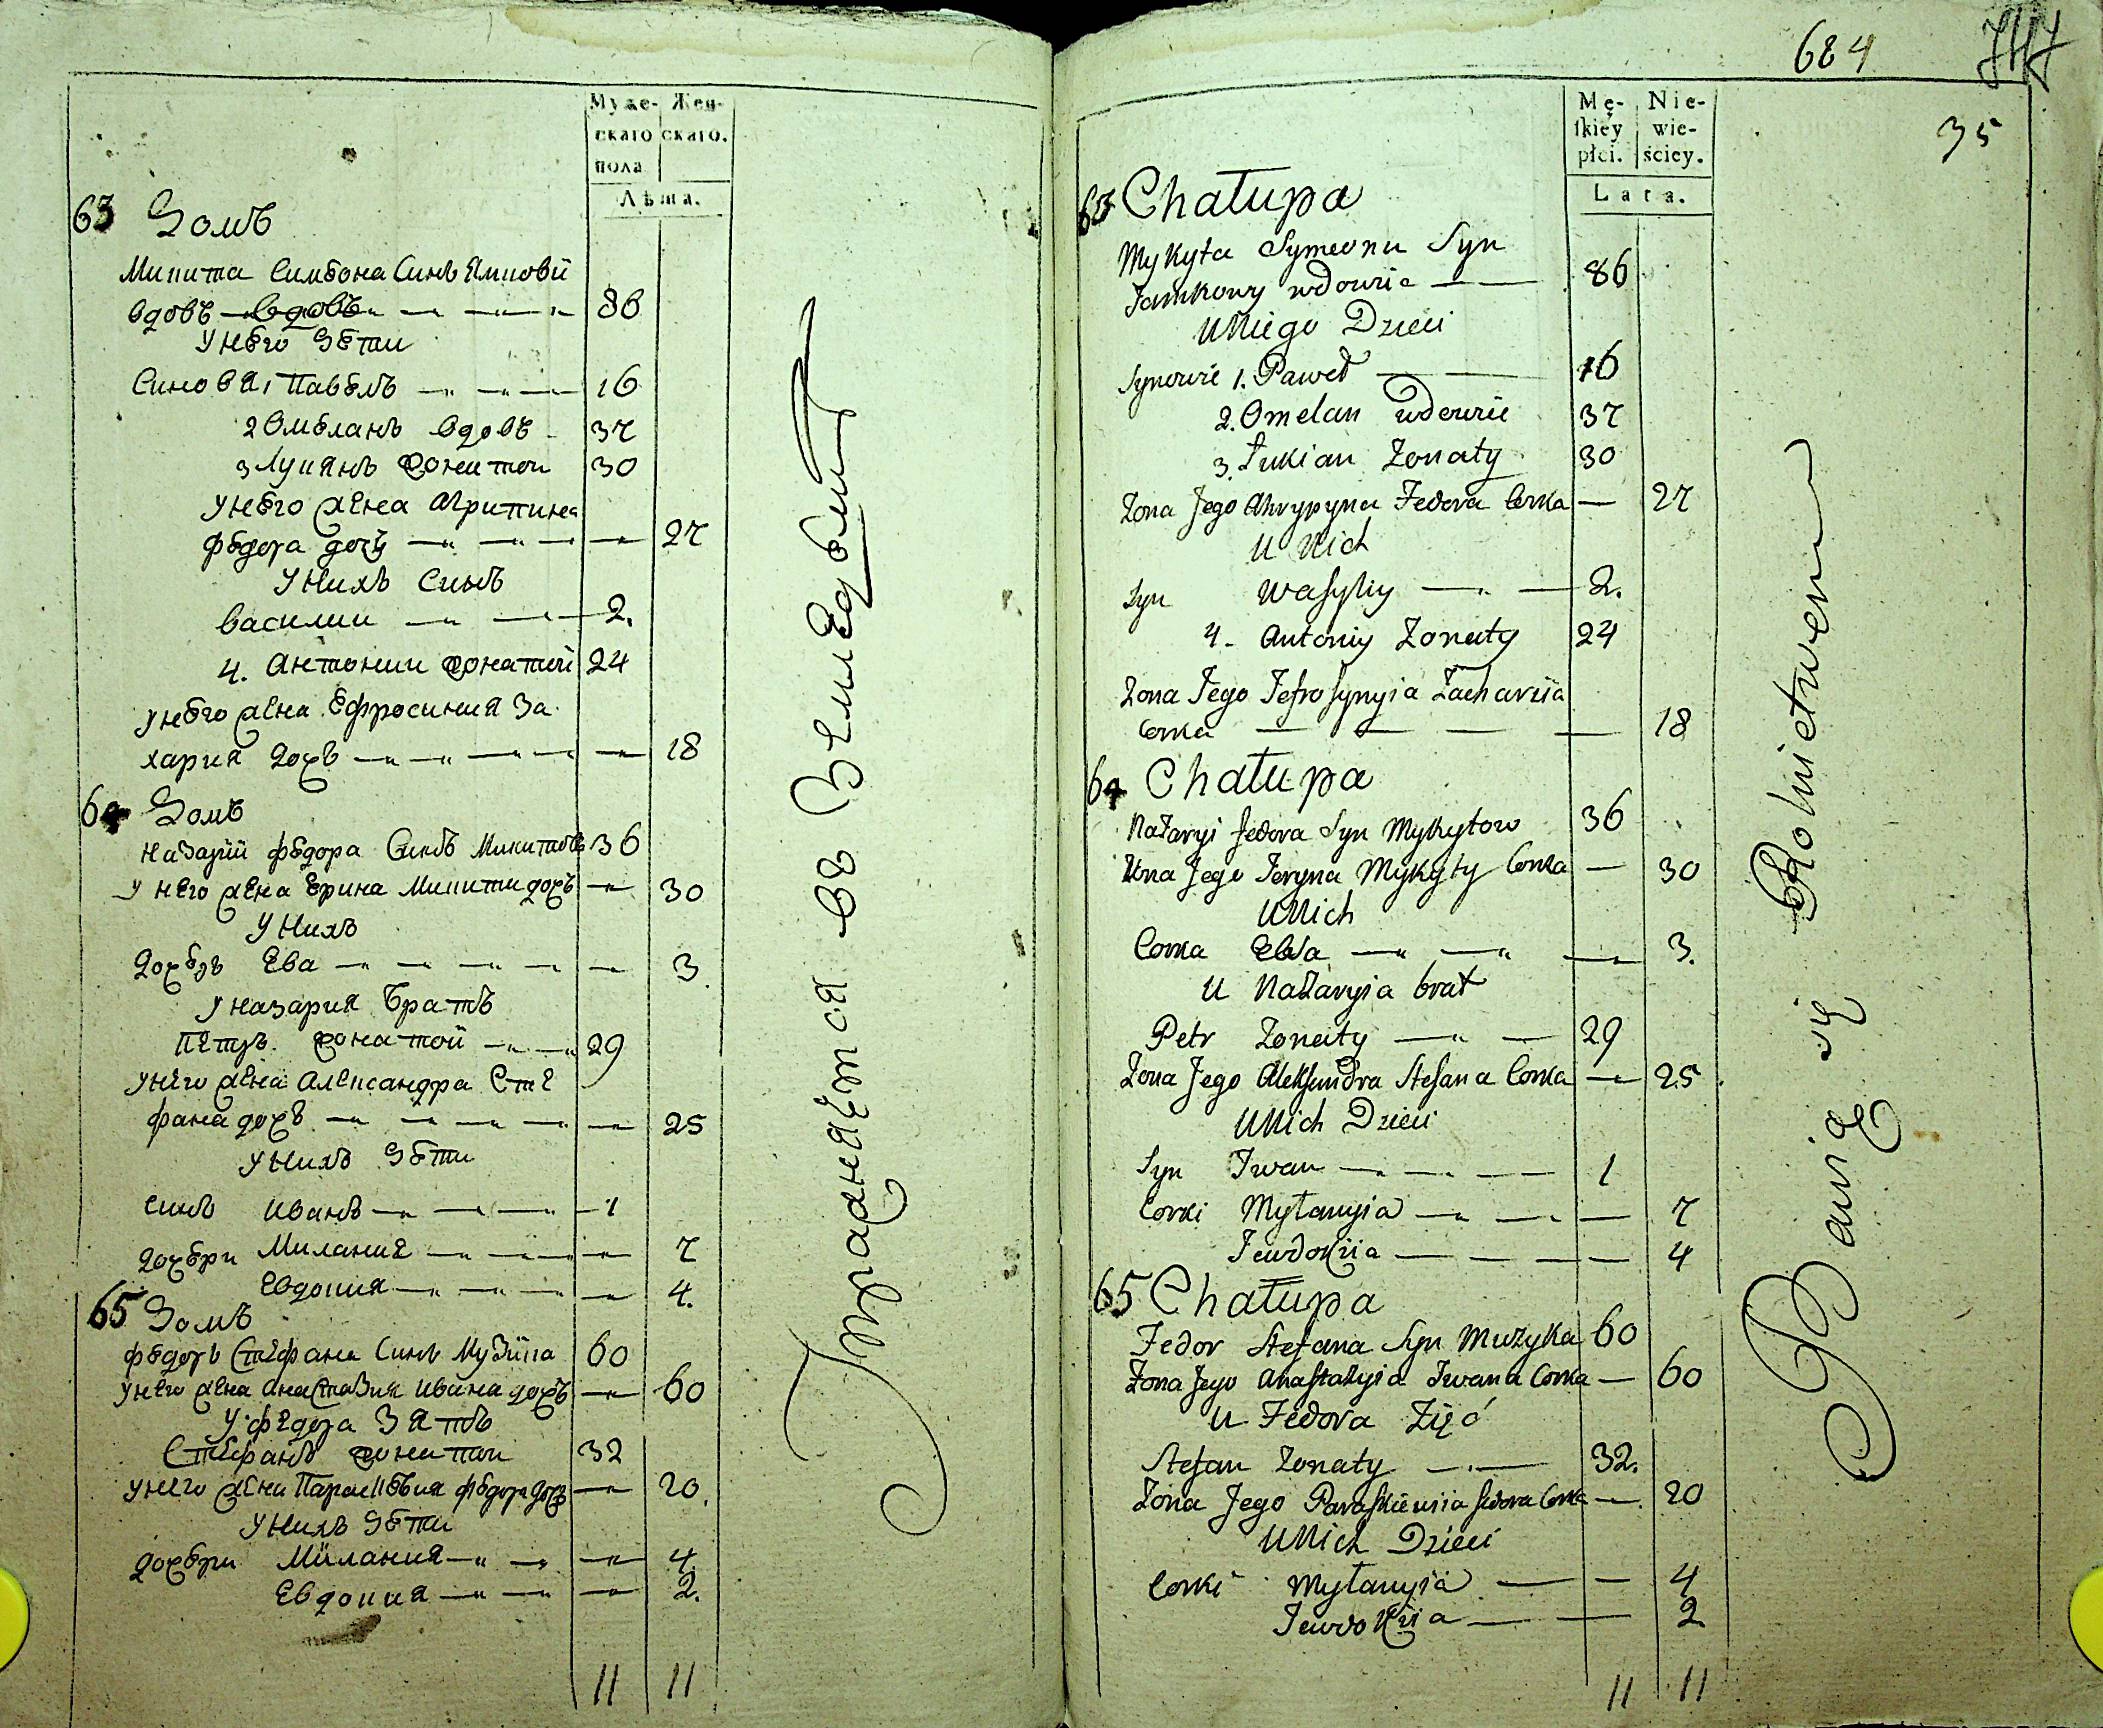 Муже- Жен-
скаго скаго.
пола
Лѣта.
63 Домъ
Микита Симеона Синъ Ямковй
вдовъ вдовъ 86
У него Дети
Синовя 1 Павелъ 16
2 Омелянъ вдовъ 37
3 Лукянъ жонатои 30
У него жена Агрипина
Федора дочъ 27
У Нихъ Синъ
Василии 2.
4. Антонии жонатои 24
У него жена Ефросиния За
хария дочъ 18
64 Домъ
Назарїй Федора Синъ Микитовъ 36
У него жена Ерина Микити дочъ 30
У Нихъ
дочеръ Ева 3.
У Назария Братъ
Петръ жонатой 29
У него жена Александра Сте
фана дочъ 25
У Нихъ Дети
Синъ Иванъ 1
дочери Милания 7
Евдокия 4.
65 Домъ
Федоръ Стефана Синъ Музїка 60
У него жена Анастазия Ивана дочъ 60
У Федора Зятъ
Стефанъ жонатои 32
У него жена Параскевия Федора дочъ 20.
У Нихъ Дети
дочери Милания 4
Евдокия 2.
11 11
Упражняется въ Земледелии
684
35
Mę- Nie-
skiéy wie-
płci. ściey.
Lata.
63 Chałupa
Mykyta Symeona Syn
Jamkowy wdowiec 86
U Niego Dzieci
Synowie 1. Paweł 16
2. Omelan wdowiec 37
3. Łukian Żonaty 30
Żona Jego Ahrypyna Fedora Corka 27
U Nich
Syn Wasyliy 2.
4. Antoniy Żonaty 24
Żona Jego Jefrosynyia Zacharyia
Corka 18
64 Chałupa
Nazaryi Fedora Syn Mykytow 36
Żona Jego Jeryna Mykyty Corka 30
U Nich
Corka Ewa 3.
U Nazaryia brat
Petr Żonaty 29
Żona Jego Aleksandra Stefana Corka 25
U Nich Dzieci
Syn Iwan 1
Corki Myłanyia 7
Jewdokiia 4
65 Chałupa
Fedor Stefana Syn Muzyka 60
Żona Jego Anastazyia Iwana Corka 60
U Fedora Zięć
Stefan Żonaty 32.
Żona Jego Paraskiewiia Fedora Corka 20
U Nich Dzieci
Corki Myłanyia 4
Jewdokiia 2
11 11
Bawią się Rolnictwem